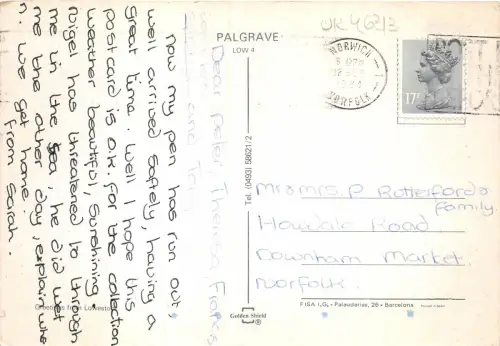 UK 46213
PALGRAVE
LOW 4
NORWICH
1984
NORFOLK
17P
Dear Peter, Theresa, Frances
and
now my pen has run out,
well arrived safely, having a
great time. Well I hope this
postcard is o.k. for the collection
weather beautiful, sunshining.
Nigel has threatened to through
me in the sea, he did wet
me the other day, explain whe
n. we get home.
from Sarah.
Greetings from Lowestoft
Tel. (0493) 58621/2
Mr & Mrs P Rutterford &
family.
Howdale Road
Downham Market.
Norfolk.
FISA I.G. - Palaudarias, 26 - Barcelona
Golden Shield
®